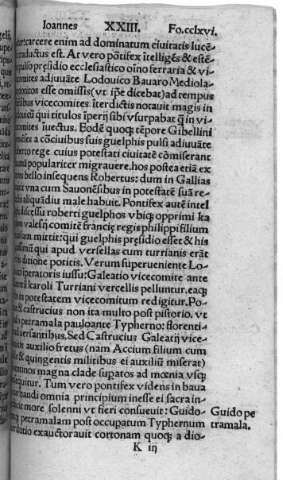 Ioannes XXIII. Fo.cclxvi.
carcere enim ad dominatum ciuitatis lucẽ
ductus est. At vero põtifex ĩtelligẽs & estẽ
p̃sidio ecclesiastico oĩno ferraria & vi
comites adiuuãte Lodouico Bauaro Mediola
esse omissis(vt ip̃e dicebat)ad tempus
ribus vicecomites ĩterdictis notauit magis in
qui titulos ĩperij sibi vsurpabat q̃ in vi
comites ĩuectus. Eodẽ quoq; tẽpore Gibellini
a cõciuibus suis guelphis pulsi adiuuãte
rege cuius potestati ciuitatẽ cõmiserant
populariter migrauere. hos postea etiã ex
bello insequens Robertus: dum in Gallias
vna cum Sauonẽsibus in potestatẽ suã re
aliquãdiu male habuit. Pontifex autẽ intel
discessu roberti guelphos vbiq; opprimi ka
valesij comitẽ francię regis philippi filium
mittit: qui guelphis pręsidio esset & his
qui apud versellas cum turrianis erãt
ditione potitis. Verum superueniente Lo
iperatoris iussu: Galeatio vicecomite ante
karoli Turriani vercellis pelluntur. eaq;
in potestatem vicecomitum redigitur. Po
castrucius non ita multo post pistorio. vt
petramala pauloante Typherno: florenti
uersantibus. Sed Castrucius Galeatij vice
auxilio fretus (nam Accium filium cum
& quingentis militibus ei auxiliũ miserat)
magna clade supatos ad mœnia vsq;
Tum vero pontifex videns in baua
omnia principium inesse ei sacra in
more solenni vt fieri consueuit: Guido- Guido pe
petramalam post occupatum Typhernum tramala.
exauctorauit cortonam quoq; a dio-
K iij